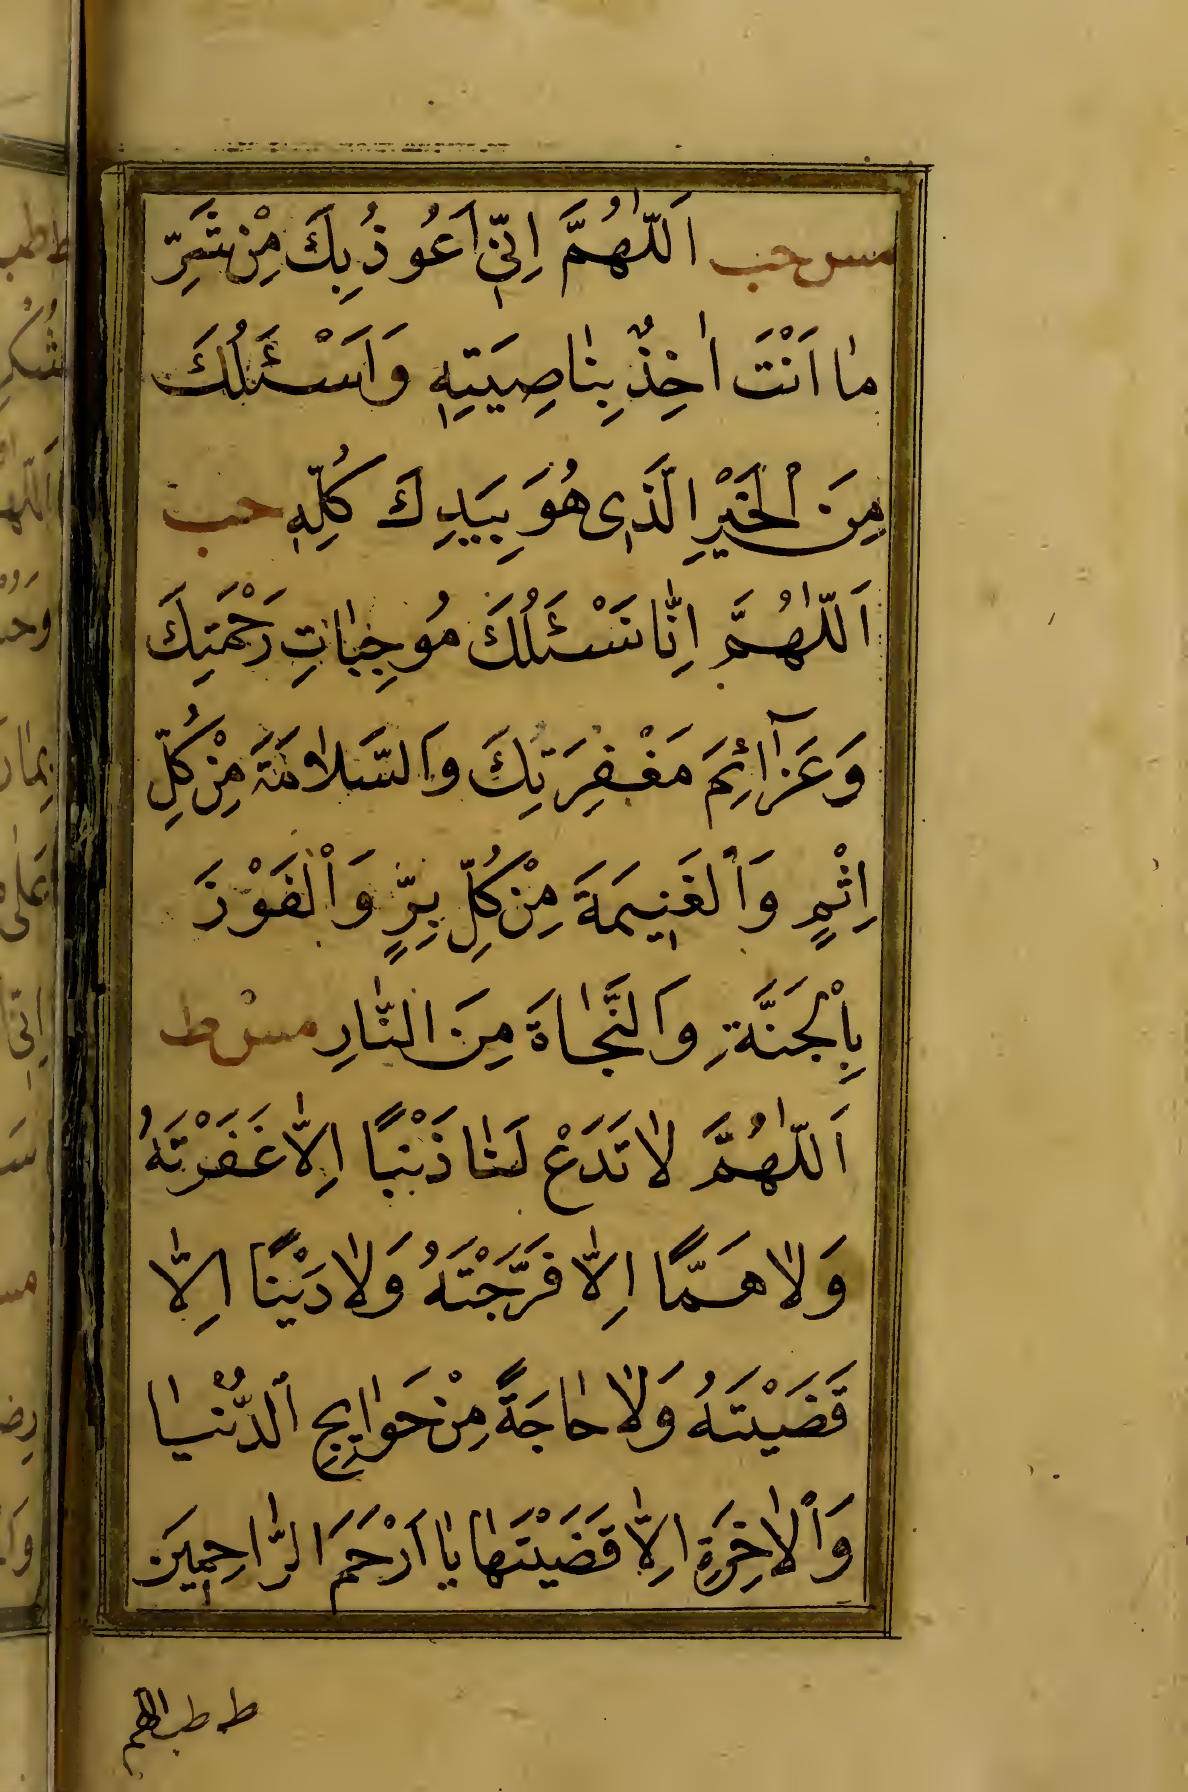 مس حب اَللّٰهُمَّ اِنّٖي اَعُوذُ بِكَ مِنْ شَرِّ
مٰا اَنْتَ اٰخِذٌ بِنٰاصِيَتِهٖ وَاَسْئَلُكَ
مِنَ الْخَيْرِ الَّذٖى هُوَ بِيَدِكَ كُلِّهٖ حب
اَللّٰهُمَّ اِنّٰا نَسْئَلُكَ مُوجِبٰاتِ رَحْمَتِكَ
وَعَزٰٓائِمَ مَغْفِرَتِكَ وَالسَّلاٰمَةَ مِنْ كُلِّ
اِثْمٍ وَالْغَنٖيمَةَ مِنْ كُلِّ بِرٍّ وَالْفَوْزَ
بِالْجَنَّةِ وَالنَّجٰاةَ مِنَ النّٰارِ مس ط
اَللّٰهُمَّ لاٰ تَدَعْ لَنٰا ذَنْبًا اِلاّٰ غَفَرْتَهُ
وَلاٰ هَمًّا اِلاّٰ فَرَّجْتَهُ وَلاٰ دَيْنًا اِلاّٰ
قَضَيْتَهُ وَلاٰ حٰاجَةً مِنْ حَوٰايِجِ الدُّنْيٰا
وَالْاٰخِرَةِ اِلاّٰ قَضَيْتَهٰا يٰا اَرْحَمَ الرّٰاحِمٖينَ
ط طب اللهم